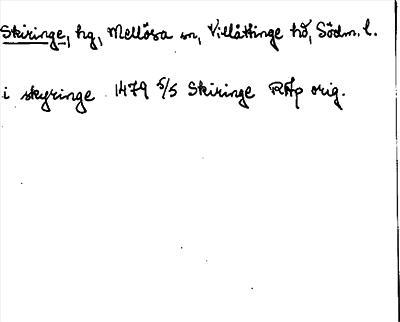 Skiringe, hg, Mellösa sn, Villåttinge hd, Södm. l.
i skyringe 1479 5/5 Skiringe RAp orig.